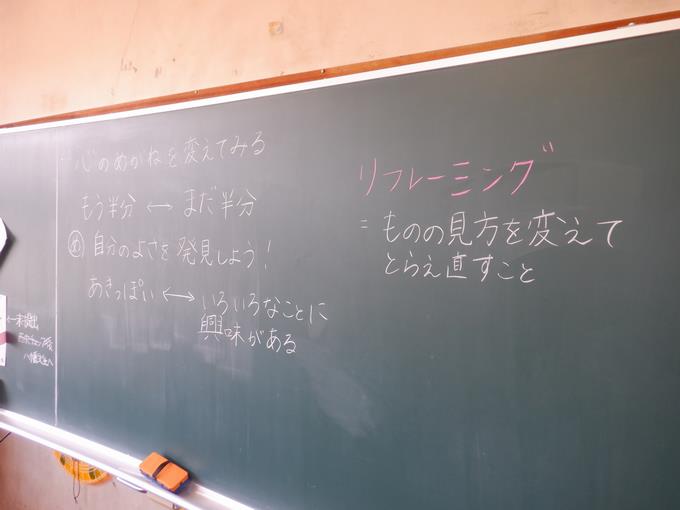 心のめがねを変えてみる
もう半分 ←→ まだ半分
め 自分のよさを発見しよう!
あきっぽい ←→ いろいろなことに
興味がある
リフレーミング
= ものの見方を変えて
とらえ直すこと
←未提出